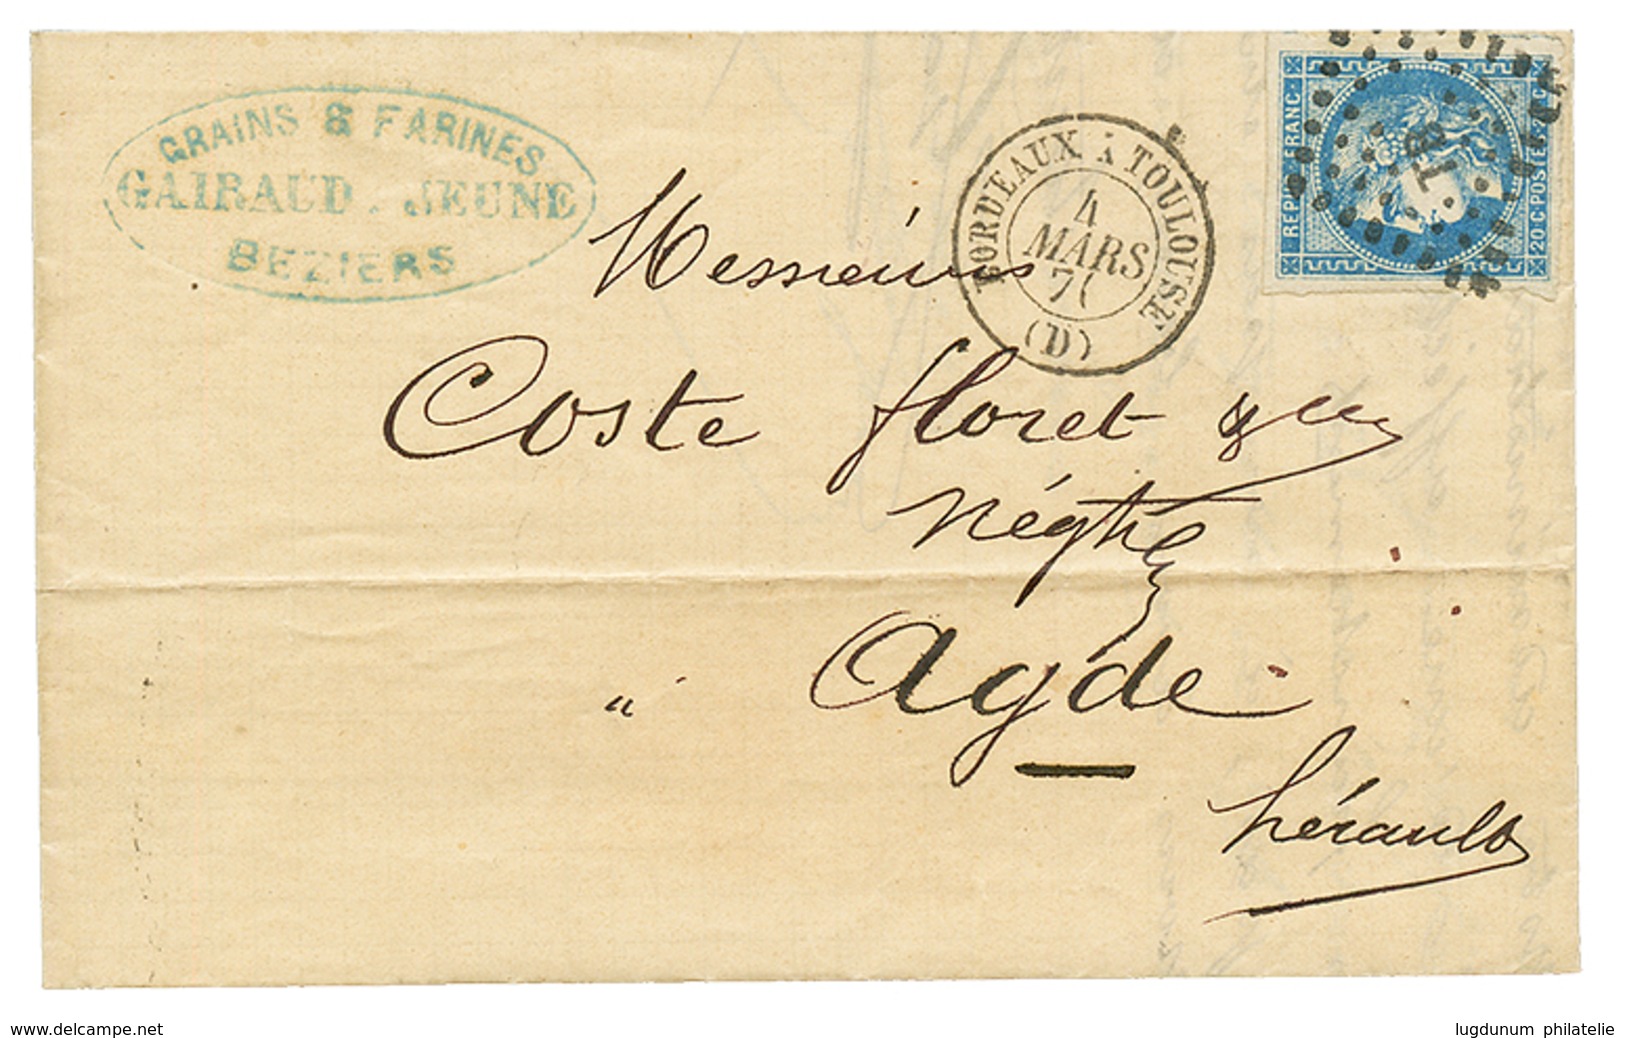 GRAINS & FARINES
GAIRAUD. JEUNE
BEZIERS
BORDEAUX A TOULOUSE
4
MARS
71
(D)
REPUB FRANC
BT
20·C·POSTE·20·C
Messieurs
Coste floret & Cie
Négts
Agde
hérault
www.delcampe.net
lugdunum philatelie